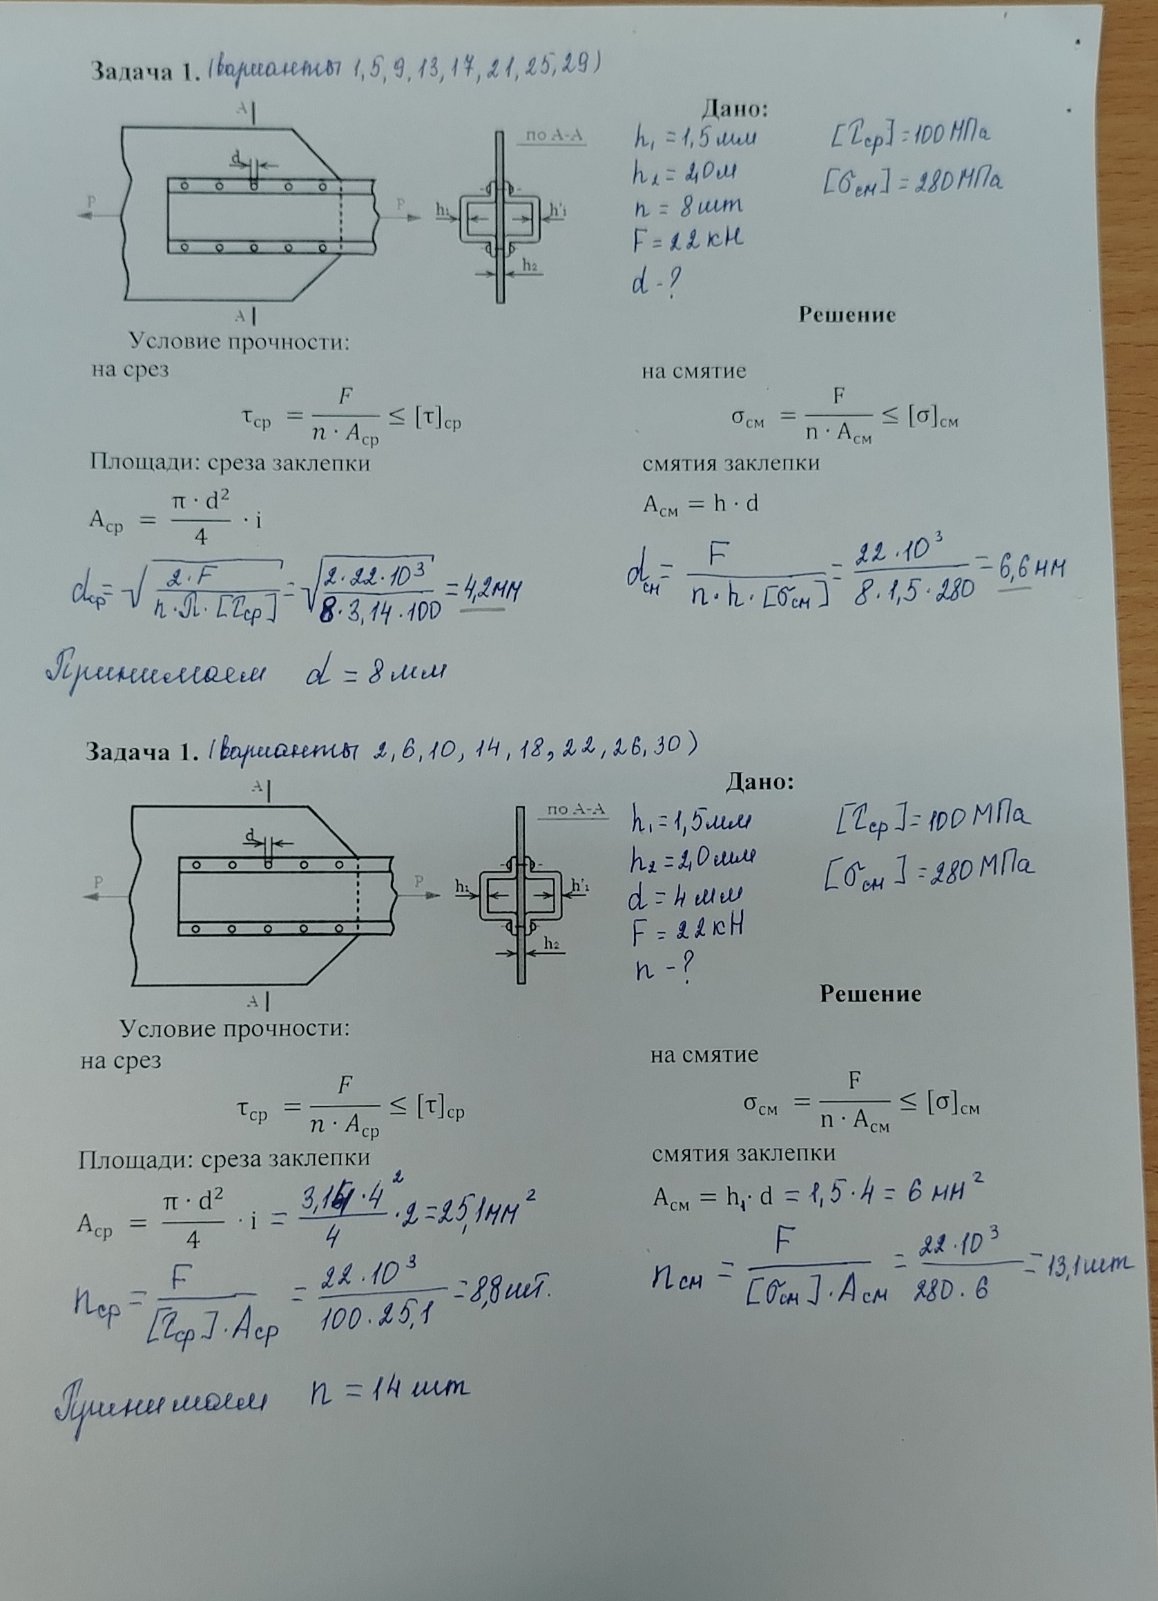 Задача 1. (варианты 1,5,9,13,17,21,25,29)
A
d
P
P
A
по A-A
h₁
h'₁
h₂
Дано:
h₁ = 1,5 мм
[τср] = 100 МПа
h₂ = 2,0 м
[σсм] = 280 МПа
n = 8 шт
F = 22 кН
d - ?
Решение
Условие прочности:
на срез
τср = F / (n · Aср) ≤ [τ]ср
на смятие
σсм = F / (n · Aсм) ≤ [σ]см
Площади: среза заклепки
Aср = (π · d²) / 4 · i
смятия заклепки
Aсм = h · d
dср = √(2·F / (n·π·[τср])) = √(2·22·10³ / (8·3,14·100)) = 4,2 мм
dсм = F / (n·h·[σсм]) = 22·10³ / (8·1,5·280) = 6,6 мм
Принимаем d = 8 мм
Задача 1. (варианты 2,6,10,14,18,22,26,30)
A
d
P
P
A
по A-A
h₁
h'₁
h₂
Дано:
h₁ = 1,5 мм
[τср] = 100 МПа
h₂ = 2,0 мм
[σсм] = 280 МПа
d = 4 мм
F = 22 кН
n - ?
Решение
Условие прочности:
на срез
τср = F / (n · Aср) ≤ [τ]ср
на смятие
σсм = F / (n · Aсм) ≤ [σ]см
Площади: среза заклепки
Aср = (π · d²) / 4 · i = (3,14·4²) / 4 · 2 = 25,1 мм²
смятия заклепки
Aсм = h₁ · d = 1,5·4 = 6 мм²
nср = F / ([τср]·Aср) = 22·10³ / (100·25,1) = 8,8 шт.
nсм = F / ([σсм]·Aсм) = 22·10³ / (280·6) = 13,1 шт
Принимаем n = 14 шт